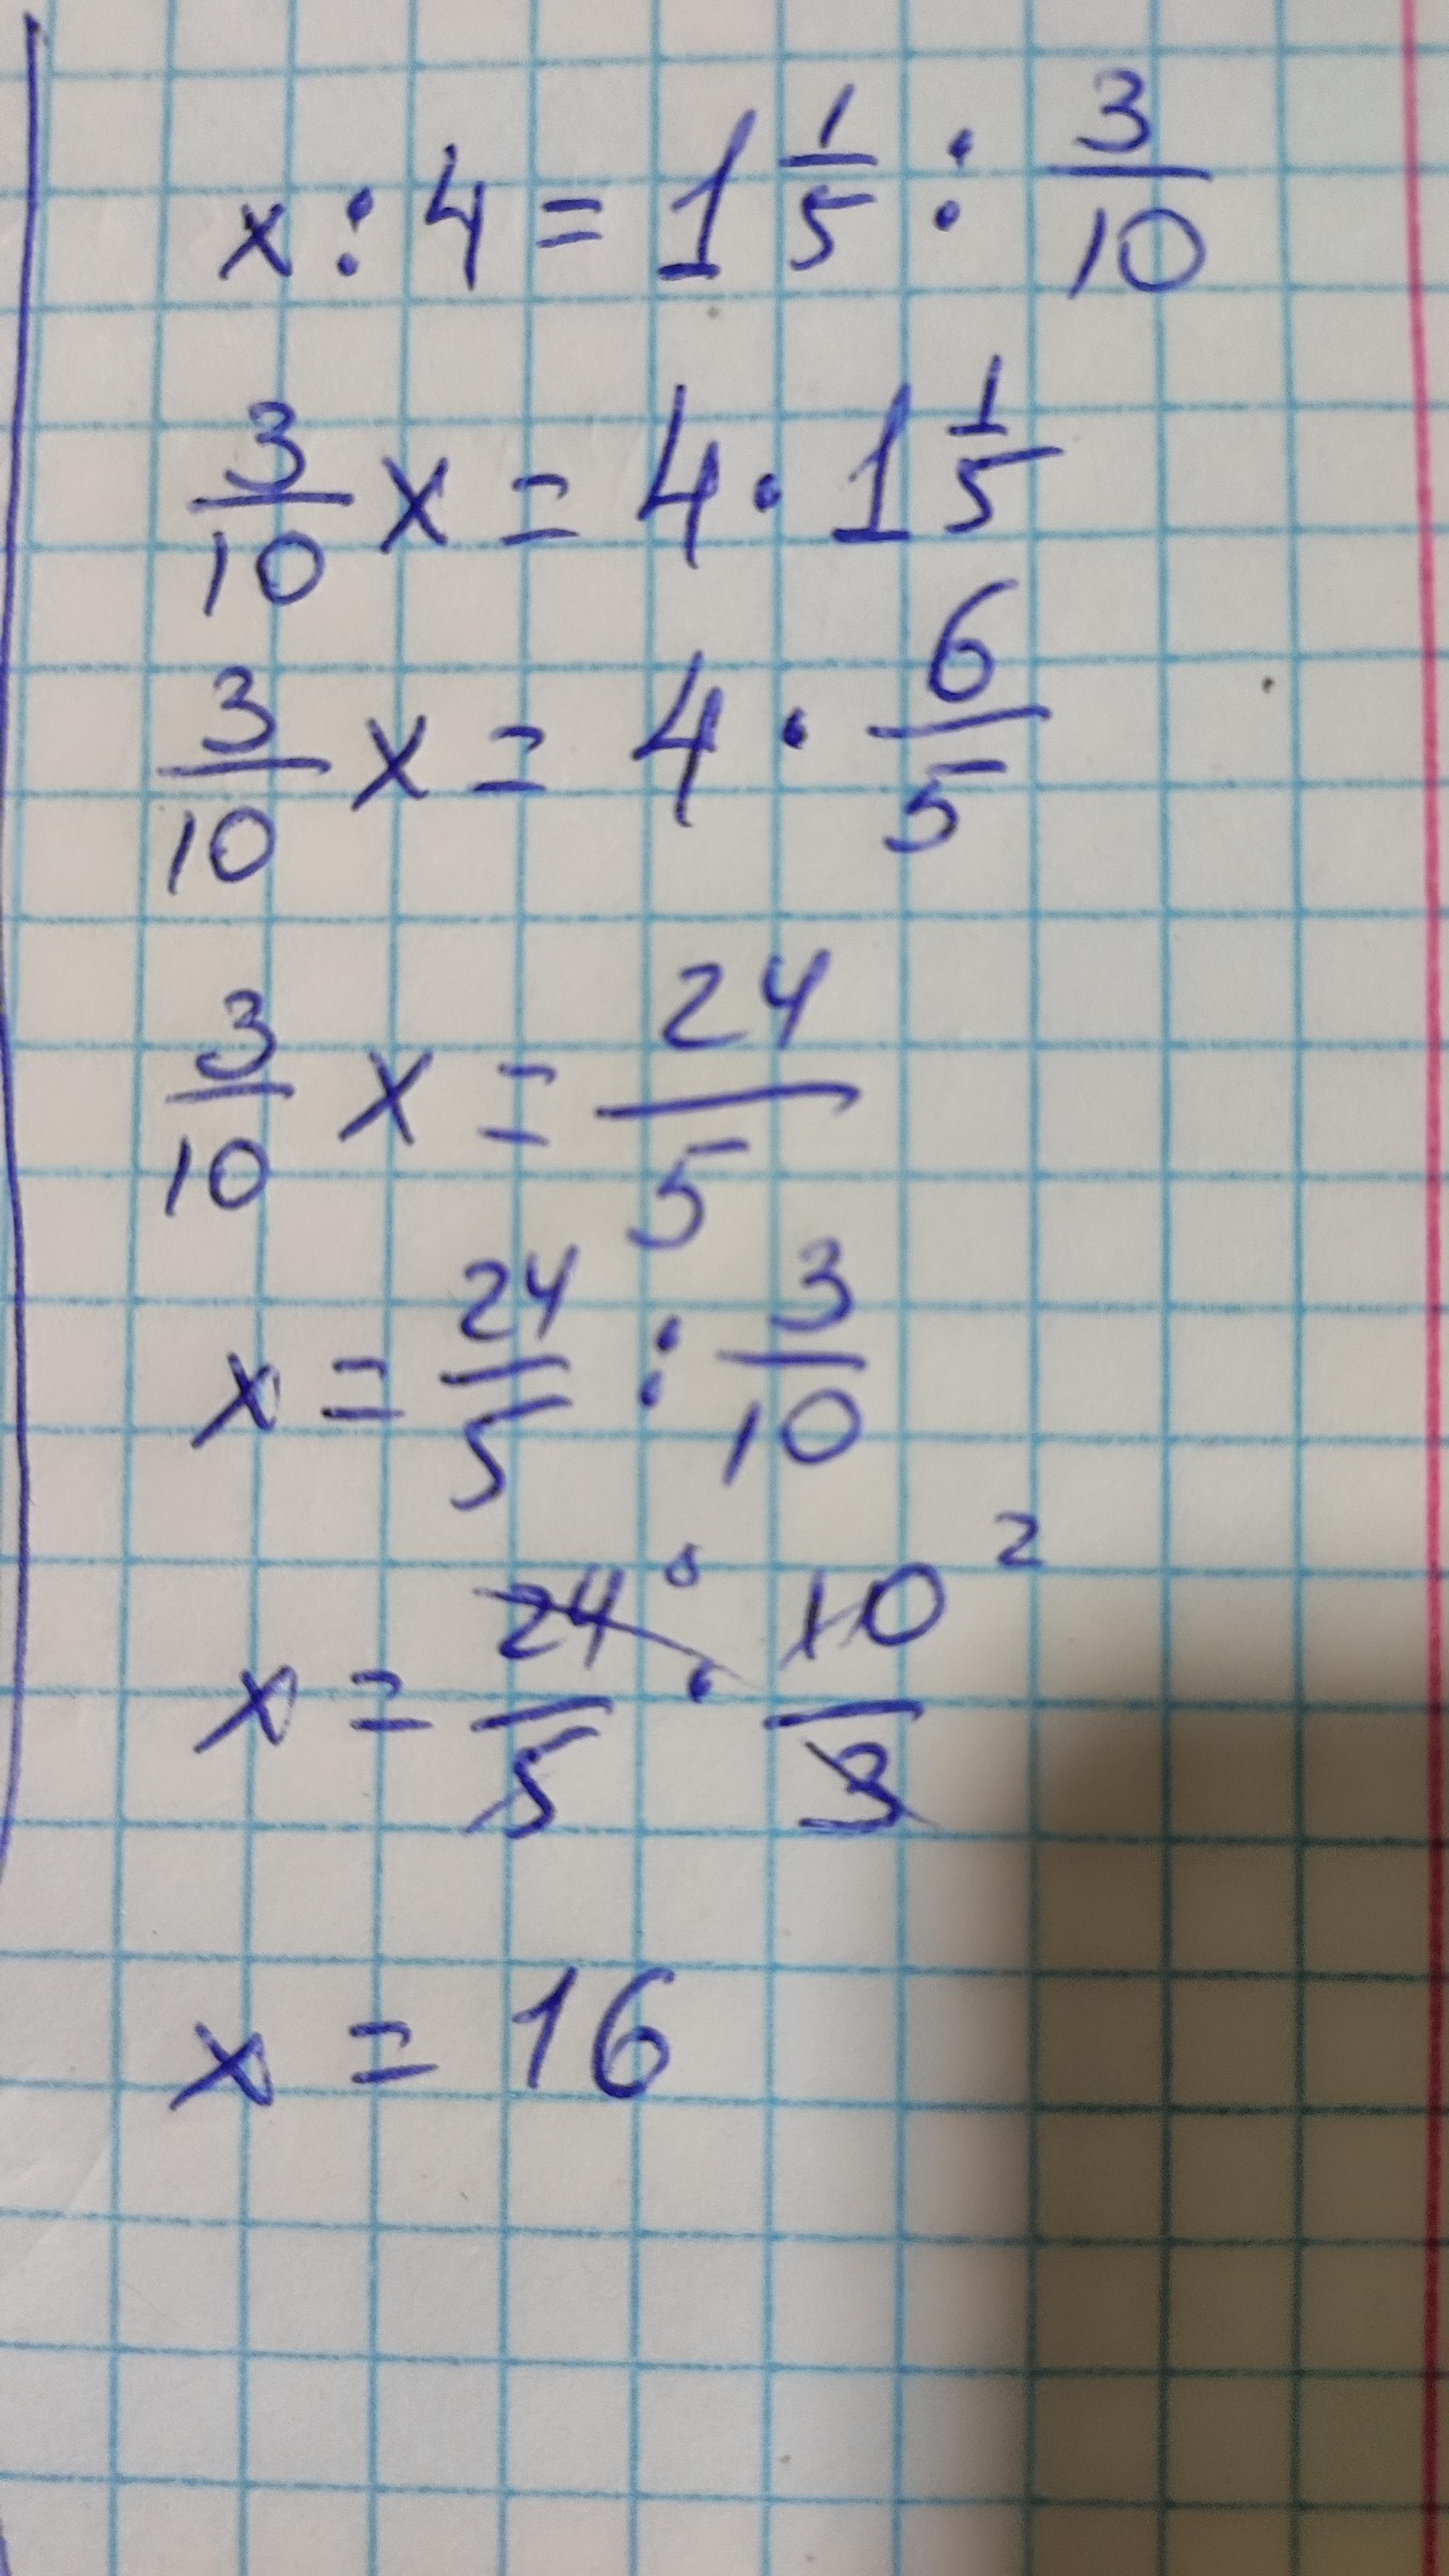 x : 4 = 1 1/5 : 3/10
3/10 x = 4 · 1 1/5
3/10 x = 4 · 6/5
3/10 x = 24/5
x = 24/5 : 3/10
x = 24⁸/5 · 10²/3
x = 16